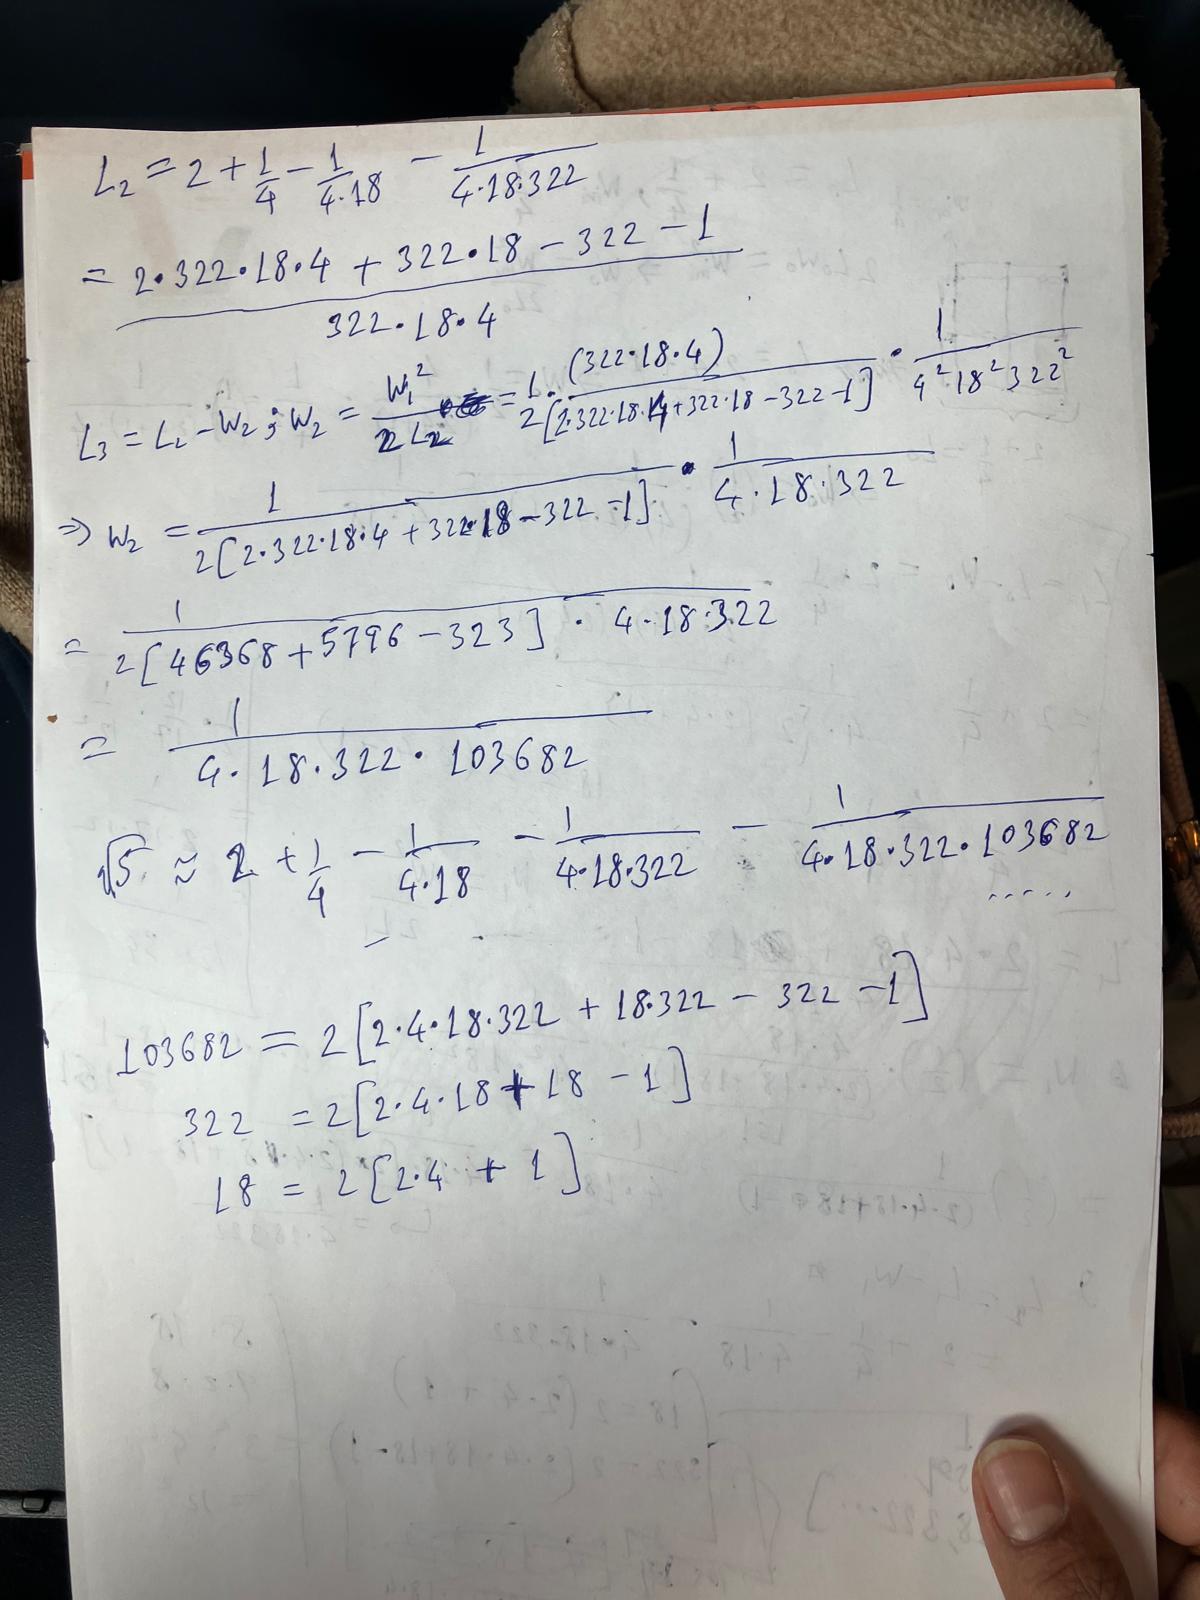 L₂ = 2 + 1/4 − 1/(4·18) − 1/(4·18·322)
= (2·322·18·4 + 322·18 − 322 − 1)/(322·18·4)
L₃ = L₂ − W₂ ; W₂ = W₁²/(2L₂) = 1·(322·18·4)/(2[2·322·18·4 + 322·18 − 322 − 1]) · 1/(4²·18²322²)
⇒ W₂ = 1/(2[2·322·18·4 + 322·18 − 322 − 1]) · 1/(4·18·322)
= 1/(2[46368 + 5796 − 323] · 4·18·322)
= 1/(4·18·322·103682)
√5 ≈ 2 + 1/4 − 1/(4·18) − 1/(4·18·322) − 1/(4·18·322·103682) .....
103682 = 2[2·4·18·322 + 18·322 − 322 − 1]
322 = 2[2·4·18 + 18 − 1]
18 = 2[2·4 + 1]